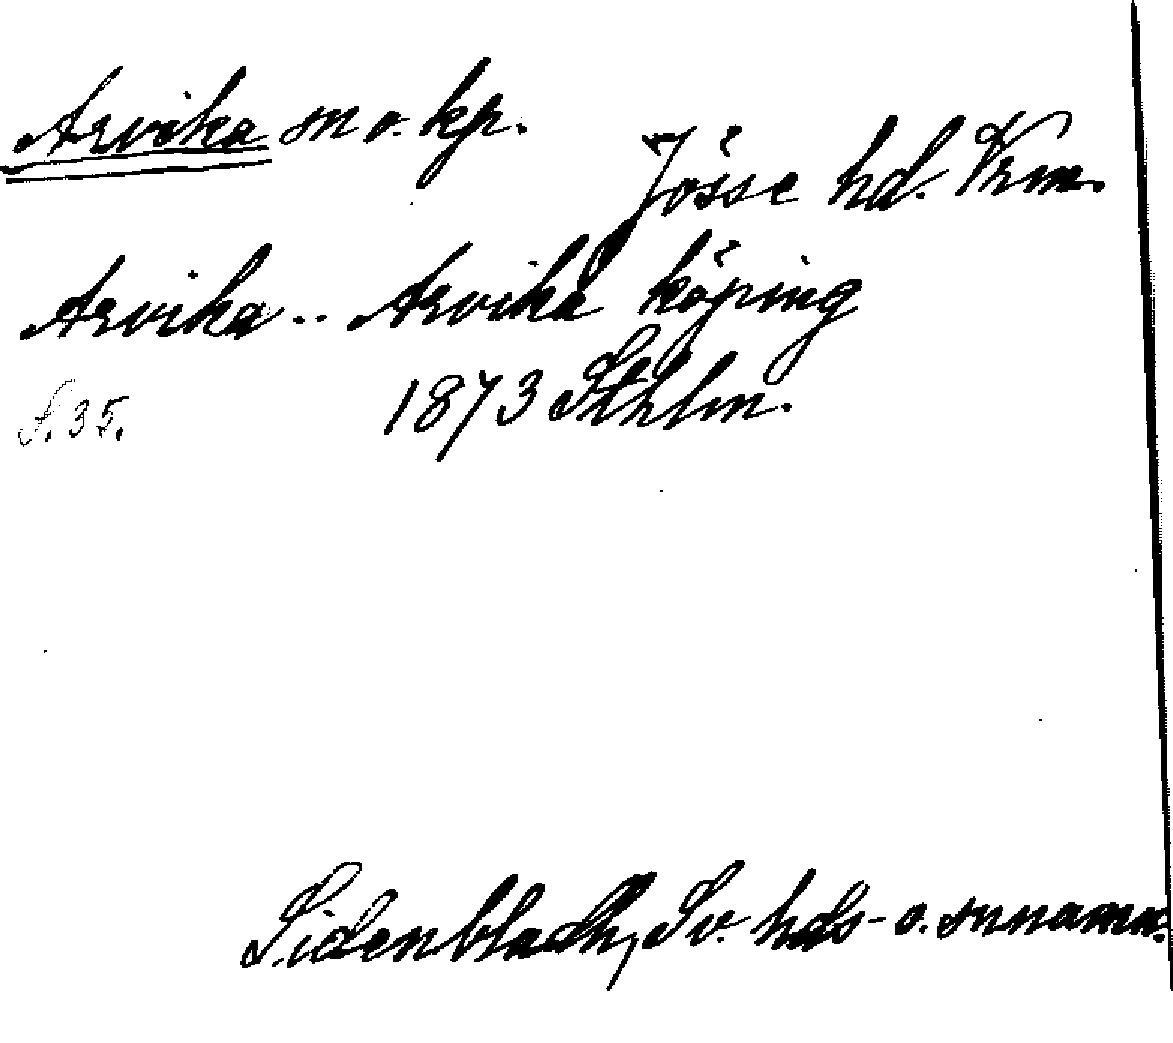 Arvika sn o. kp.
Jösse hd. Vrm.
Arvika .. Arvika köping
S. 35. 1873 Sthlm.
Sidenbladh, Sv. hds- o. snnamn.